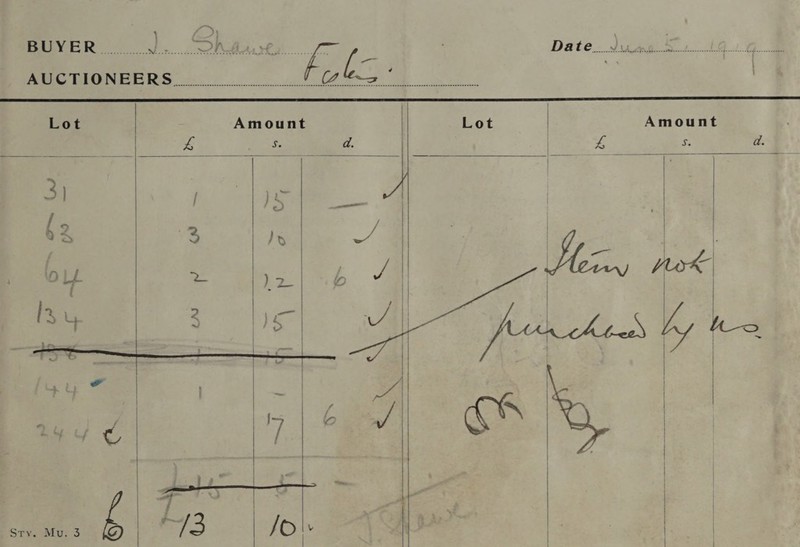 BUYER J. Shawe Date June 5. 1919
AUCTIONEERS Fosters
Lot Amount Lot Amount
£ s. d. £ s. d.
31 1 15 — ✓
63 3 10 ✓
64 2 12 6 ✓ Item not
134 3 15 ✓ purchased by us.
1 15 ✓
144 1 - ✓
244 17 6 ✓
£15 5 -
£13 10 J. Shawe
STY. MU. 3